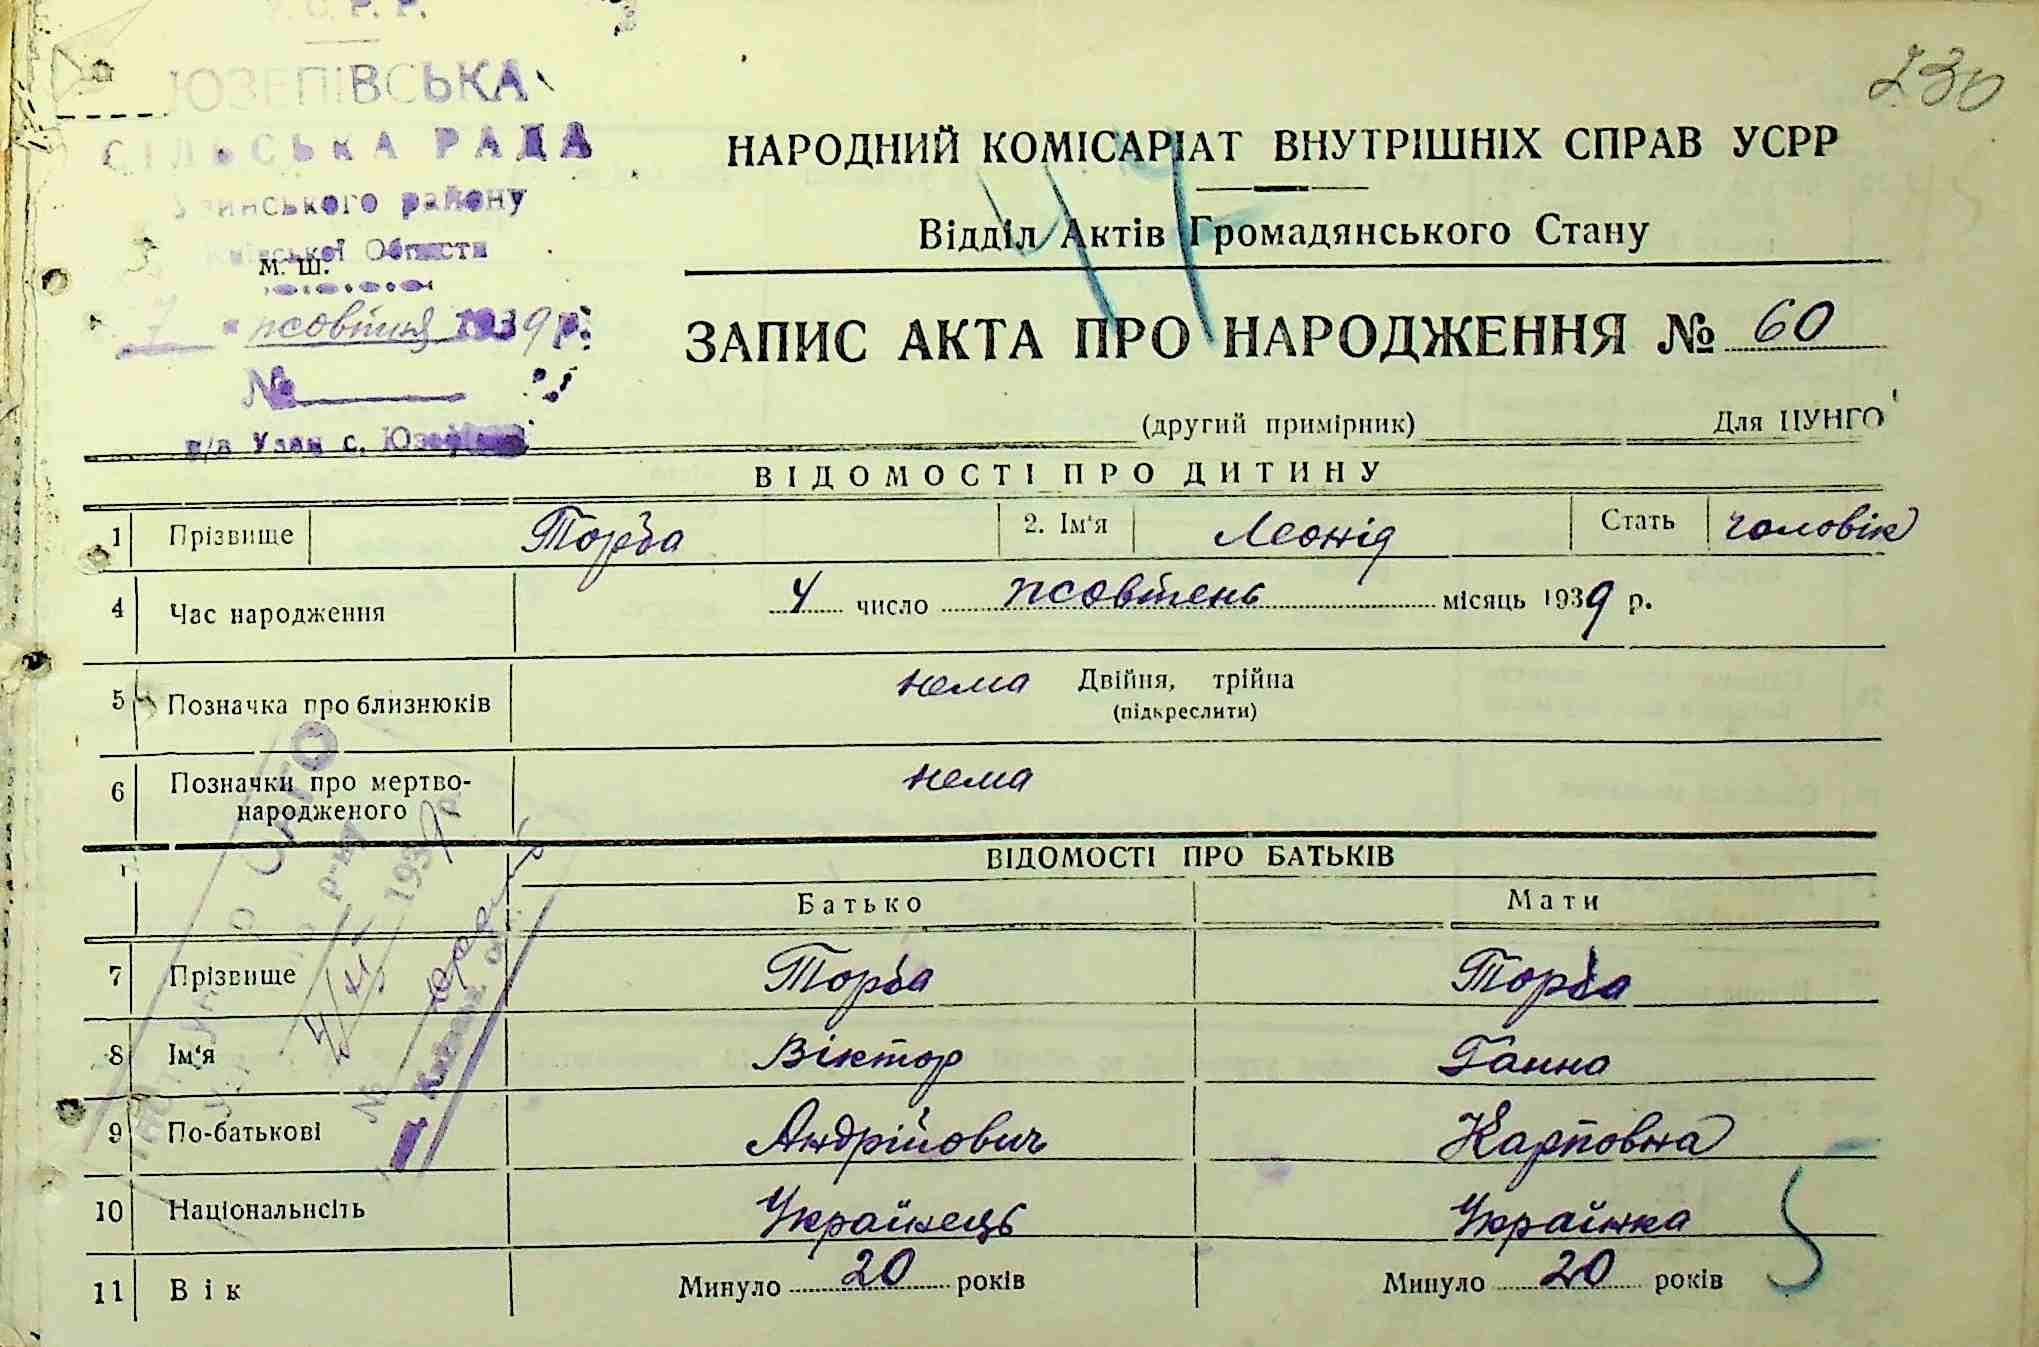 У.С.Р.Р.
230
ЮЗЕПІВСЬКА
СІЛЬСЬКА РАДА
Узинського району
Київської Области
М. Ш.
7 " жовтня 1939 р.
№
п/в Узин с.
НАРОДНИЙ КОМІСАРІАТ ВНУТРІШНІХ СПРАВ УСРР
Відділ Актів Громадянського Стану
ЗАПИС АКТА ПРО НАРОДЖЕННЯ № 60
(другий примірник) Для ЦУНГО
ВІДОМОСТІ ПРО ДИТИНУ
1 Прізвище Торба 2. Ім'я Леонід Стать чоловік
4 Час народження 4 число жовтень місяць 1939 р.
5 Позначка про близнюків нема Двійня, трійна
(підкреслити)
6 Позначки про мертво-
народженого нема
ВІДОМОСТІ ПРО БАТЬКІВ
Батько Мати
7 Прізвище Торба Торба
8 Ім'я Віктор Ганна
9 По-батькові Андрійович Карповна
10 Національнсіть Українець Українка
11 Вік Минуло 20 років Минуло 20 років